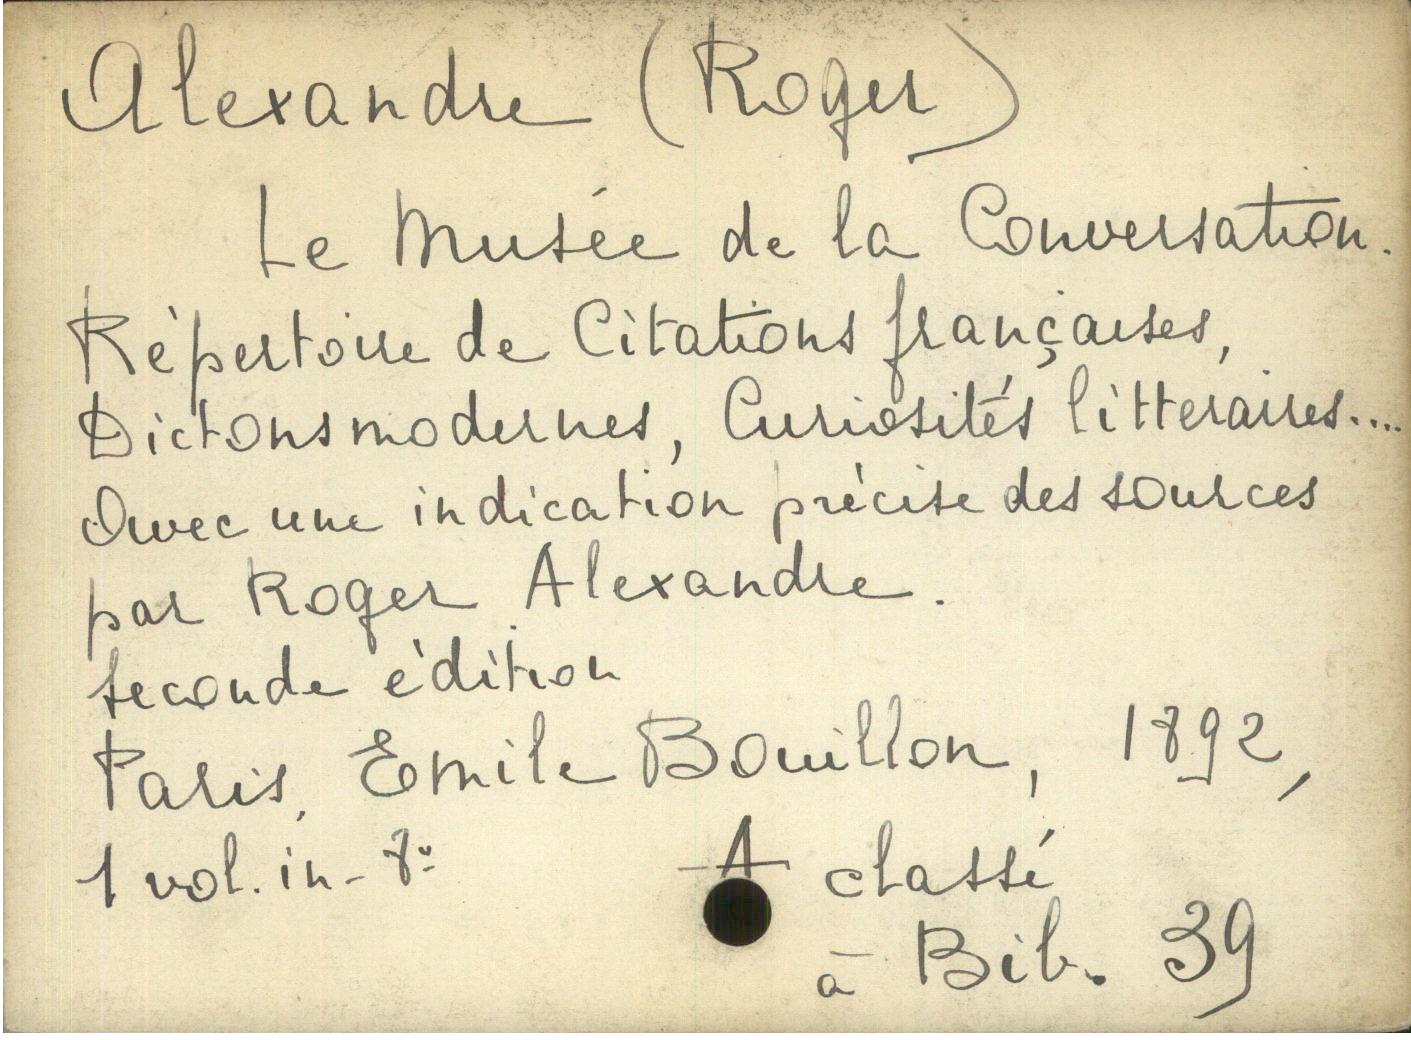 Alexandre (Roger)
Le Musée de la Conversation.
Répertoire de Citations françaises,
Dictons modernes, Curiosités litteraires....
avec une indication précise des sources
par Roger Alexandre.
seconde édition
Paris, Emile Bouillon, 1892,
1 vol. in-8º
A classé
à Bib. 39